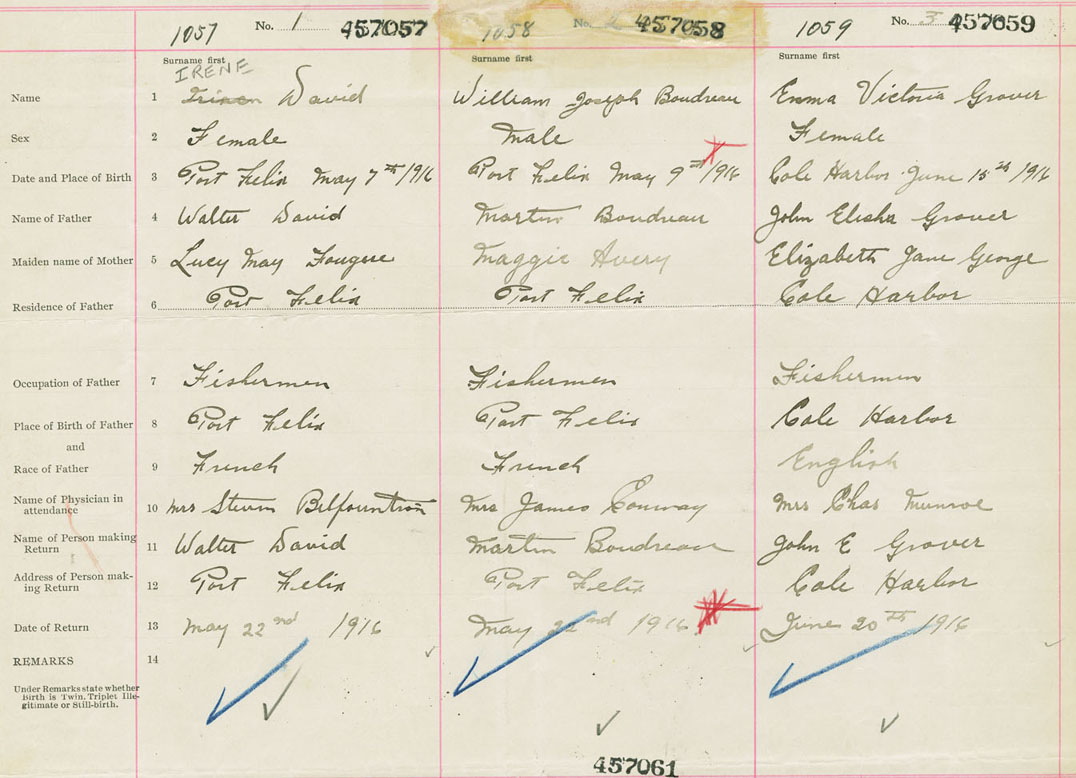 1057 No. 1 457057 1058 No. 2 457058 1059 No. 3 457059
Surname first Surname first Surname first
IRENE
Name 1 David William Joseph Boudreau Emma Victoria Grover
Sex 2 Female Male Female
Date and Place of Birth 3 Port Felix May 7th/1916 Port Felix May 9th/1916 Cole Harbor June 15th/1916
Name of Father 4 Walter David Martin Boudreau John Elisha Grover
Maiden name of Mother 5 Lucy May Fougere Maggie Avery Elizabeth Jane George
Residence of Father 6 Port Felix Port Felix Cole Harbor
Occupation of Father 7 Fishermen Fishermen Fishermen
Place of Birth of Father 8 Port Felix Port Felix Cole Harbor
and
Race of Father 9 French French English
Name of Physician in
attendance 10 Mrs Belfountion Mrs James Conway Mrs Chas Munroe
Name of Person making
Return 11 Walter David Martin Boudreau John E Grover
Address of Person mak-
ing Return 12 Port Felix Port Felix Cole Harbor
Date of Return 13 May 22nd 1916 May 22nd 1916 June 20th 1916
REMARKS 14
Under Remarks state whether
Birth is Twin, Triplet Ille-
gitimate or Still-birth.
457061